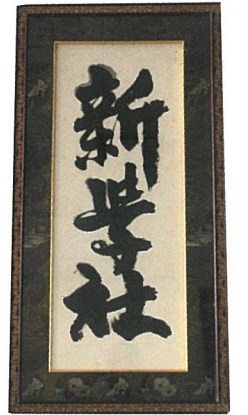 新學社